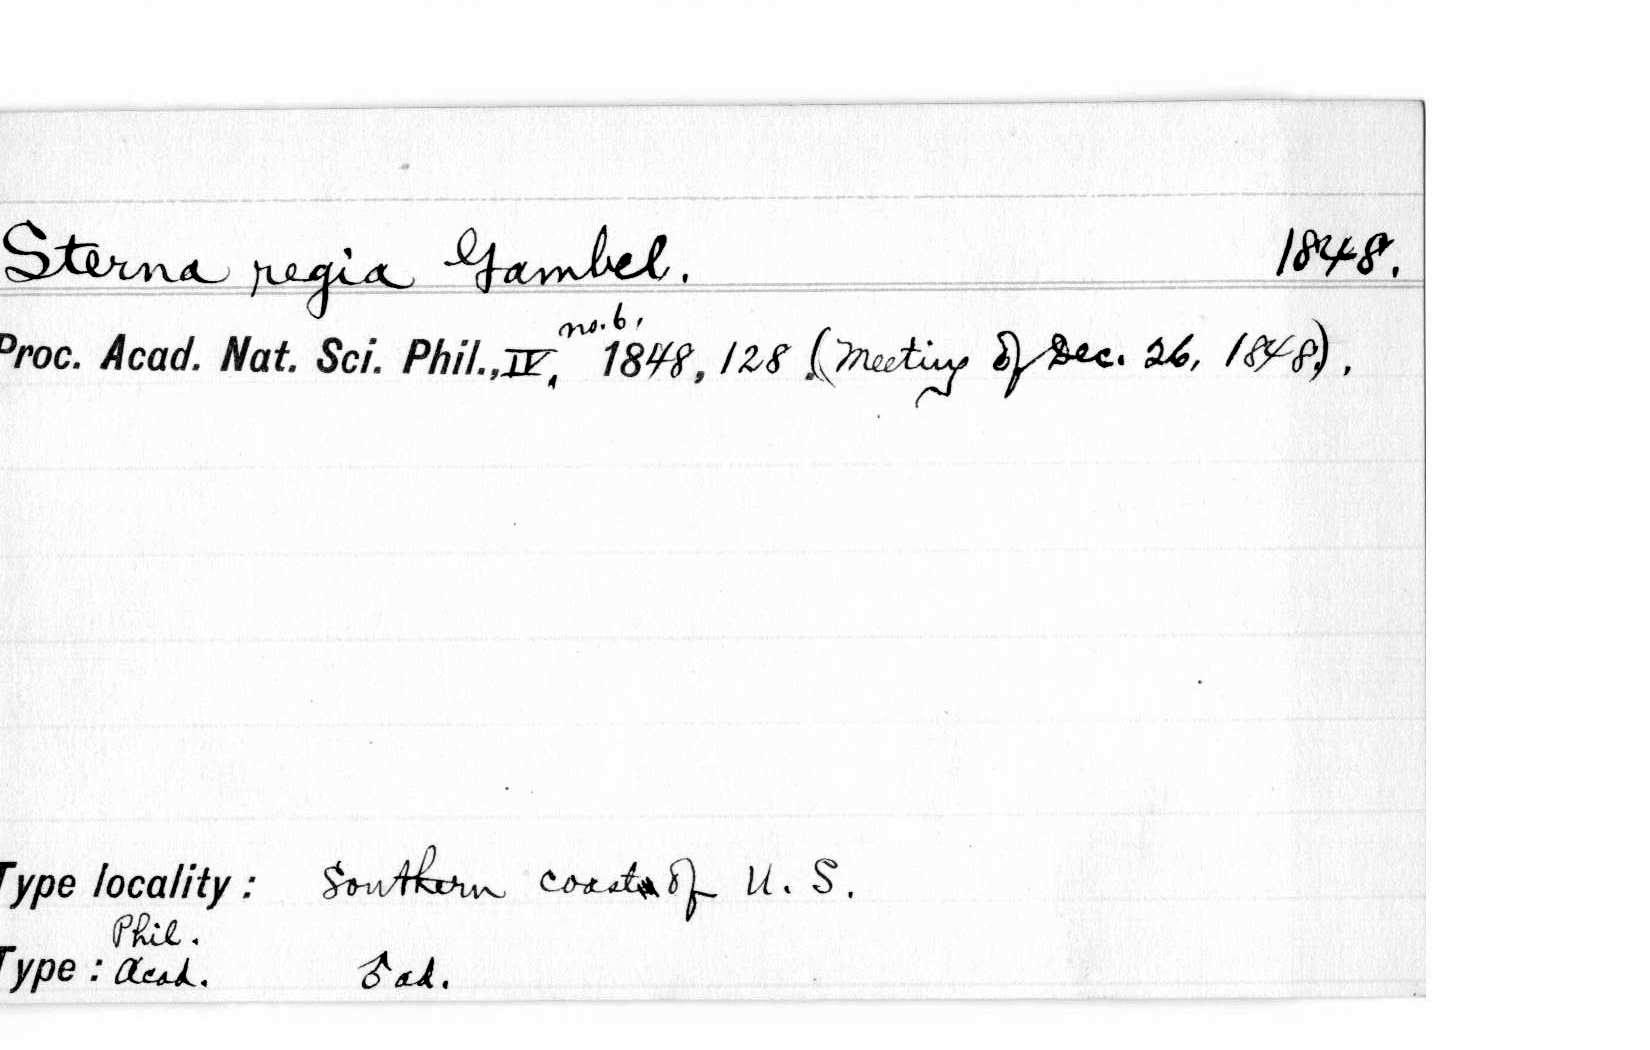 Sterna regia Gambel. 1848.
no. 6,
Proc. Acad. Nat. Sci. Phil., IV, 1848, 128 (Meeting of Dec. 26, 1848).,
Type locality: Southern coast of U. S.
Phil.
Type: Acad. ♂ ad.